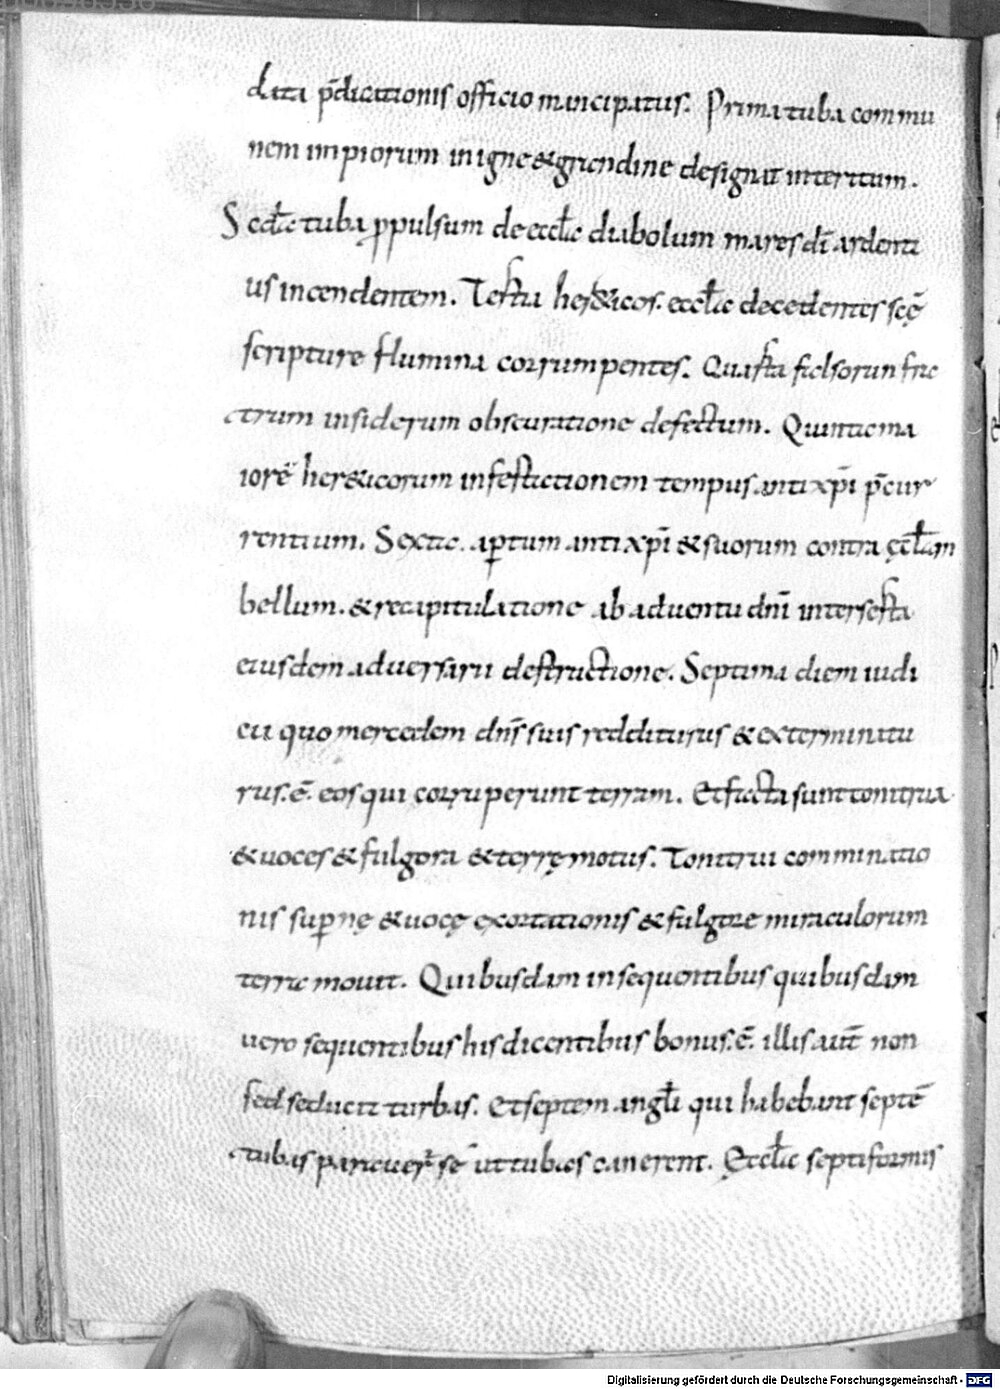 data p̄dicationis officio mancipatus. Prima tuba commu
nem impiorum in igne & grandine designat interitum.
Scdā tuba ꝓpulsum de eccłā diabolum mare sclī ardenti
us incendentem. Tertia her&icos. eccłā decedentes scę̄
scripture flumina corrumpentes. Quarta falsorum fra
trum in siderum obscuratione defectum. Quinta ma
iorē her&icorum infestationem tempus antixp̄i p̄cur
rentium. Sexta. aꝑtum antixp̄i & suorum contra ęccłam
bellum. & recapitulatione ab aduentu dn̄i interserta
eiusdem aduersarii destructione. Septima diem iudi
cii quo mercedem dn̄s suis redditurus & exterminatu
rus. ē. eos qui corruperunt terram. Et facta sunt tonitrua
& uoces & fulgora & terrę motus. Tonitrui comminatio
nis suꝑnę & uocę exortationis & fulgore miraculorum
terra mouit. Quibusdam insequentibus quibusdam
uero sequentibus his dicentibus bonus. ē. illis aut̄ non
sed seducit turbas. Et septem angłi qui habebant septē
tubas parauer̄ se ut tubas canerent. Ęccłā septiformis
Digitalisierung gefördert durch die Deutsche Forschungsgemeinschaft - DFG